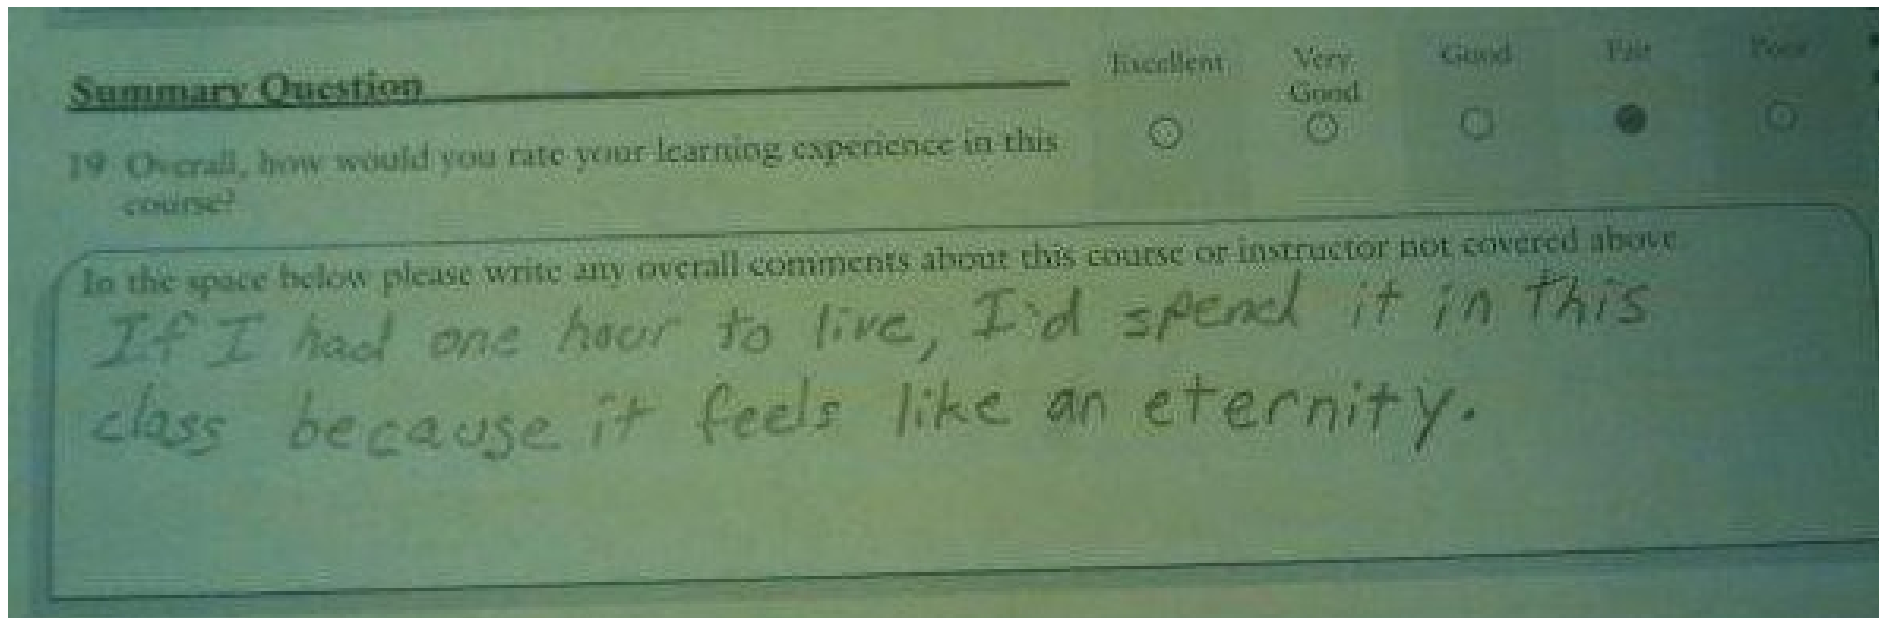 Excellent Very Good Good Fair Poor
Summary Question
19 Overall, how would you rate your learning experience in this
course?
In the space below please write any overall comments about this course or instructor not covered above
If I had one hour to live, I'd spend it in this
class because it feels like an eternity.